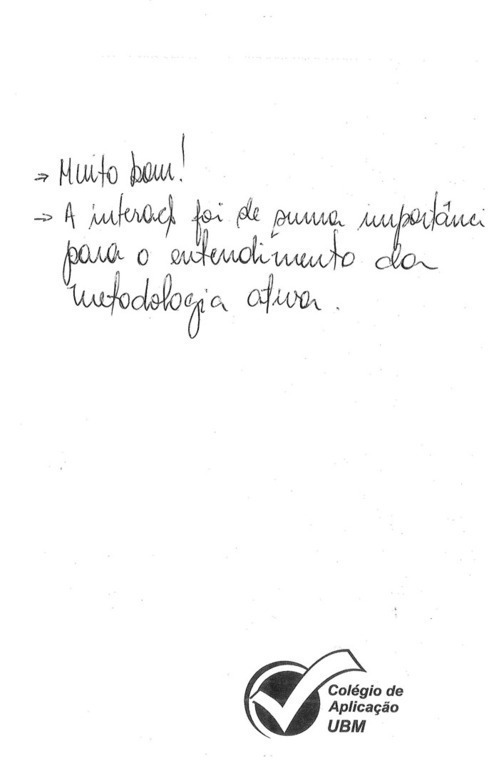 → Muito bom!
→ A interaç foi de suma importânci
para o entendimento da
metodologia ativa.
Colégio de
Aplicação
UBM